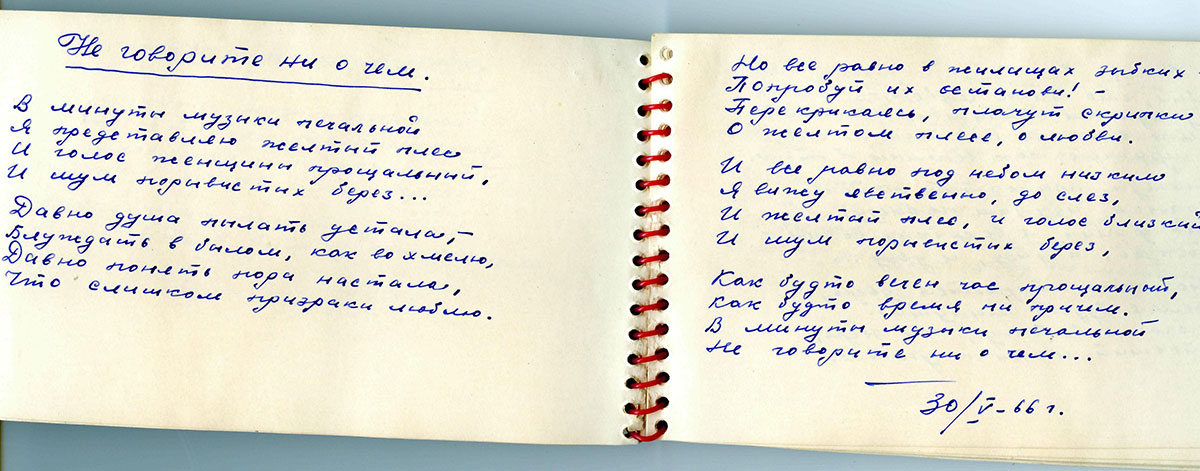 Не говорите ни о чем.
В минуты музыки печальной
Я представляю желтый плес
И голос женщины прощальный,
И шум порывистых берез...
Давно душа пылать устала, –
Блуждать в былом, как во хмелю,
Давно понять пора настала,
Что слишком призраки люблю.
Но все равно в жилищах зыбких –
Попробуй их останови! –
Перекликаясь, плачут скрипки
О желтом плесе, о любви.
И все равно под небом низким
Я вижу явственно, до слез,
И желтый плес, и голос близкий
И шум порывистых берез,
Как будто вечен час прощальный,
Как будто время ни причем.
В минуты музыки печальной
Не говорите ни о чем...
30/V-66 г.